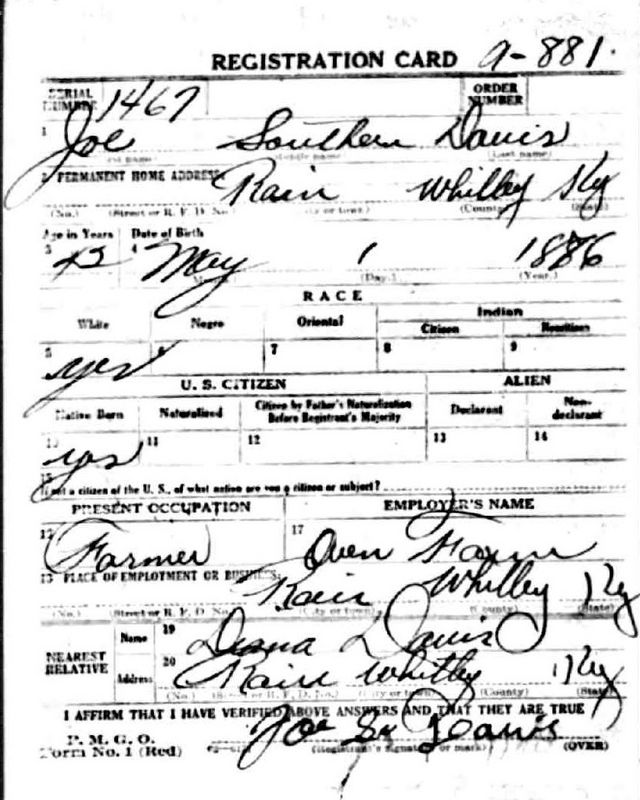 REGISTRATION CARD A-881.
SERIAL NUMBER 1467 ORDER NUMBER
1 Joe Southern Davis
(Middle name) (Last name)
2 PERMANENT HOME ADDRESS: Rain Whitley Ky
(No.) (Street or R. F. D. No.) (City or town) (County) (State)
Age in Years Date of Birth
3 4 May 1 1886
(Month.) (Day.) (Year.)
RACE
White Negro Oriental Indian
Citizen Noncitizen
5 yes 6 7 8 9
U. S. CITIZEN ALIEN
Native Born Naturalized Citizen by Father's Naturalization Before Registrant's Majority Declarant Non-declarant
10 yes 11 12 13 14
15 If not a citizen of the U. S., of what nation are you a citizen or subject?
PRESENT OCCUPATION EMPLOYER'S NAME
Farmer 17 Oven Farm
PLACE OF EMPLOYMENT OR BUSINESS: Rain Whitley Ky
(No.) (Street or R. F. D. No.) (City or town) (County) (State)
NEAREST RELATIVE Name 19 Davis
Address 20 Rain Whitley Ky
(No.) (Street or R. F. D. No.) (City or town) (County) (State)
I AFFIRM THAT I HAVE VERIFIED ABOVE ANSWERS AND THAT THEY ARE TRUE
P. M. G. O.
Form No. 1 (Red) Joe So Davis
(Registrant's signature or mark) (OVER)